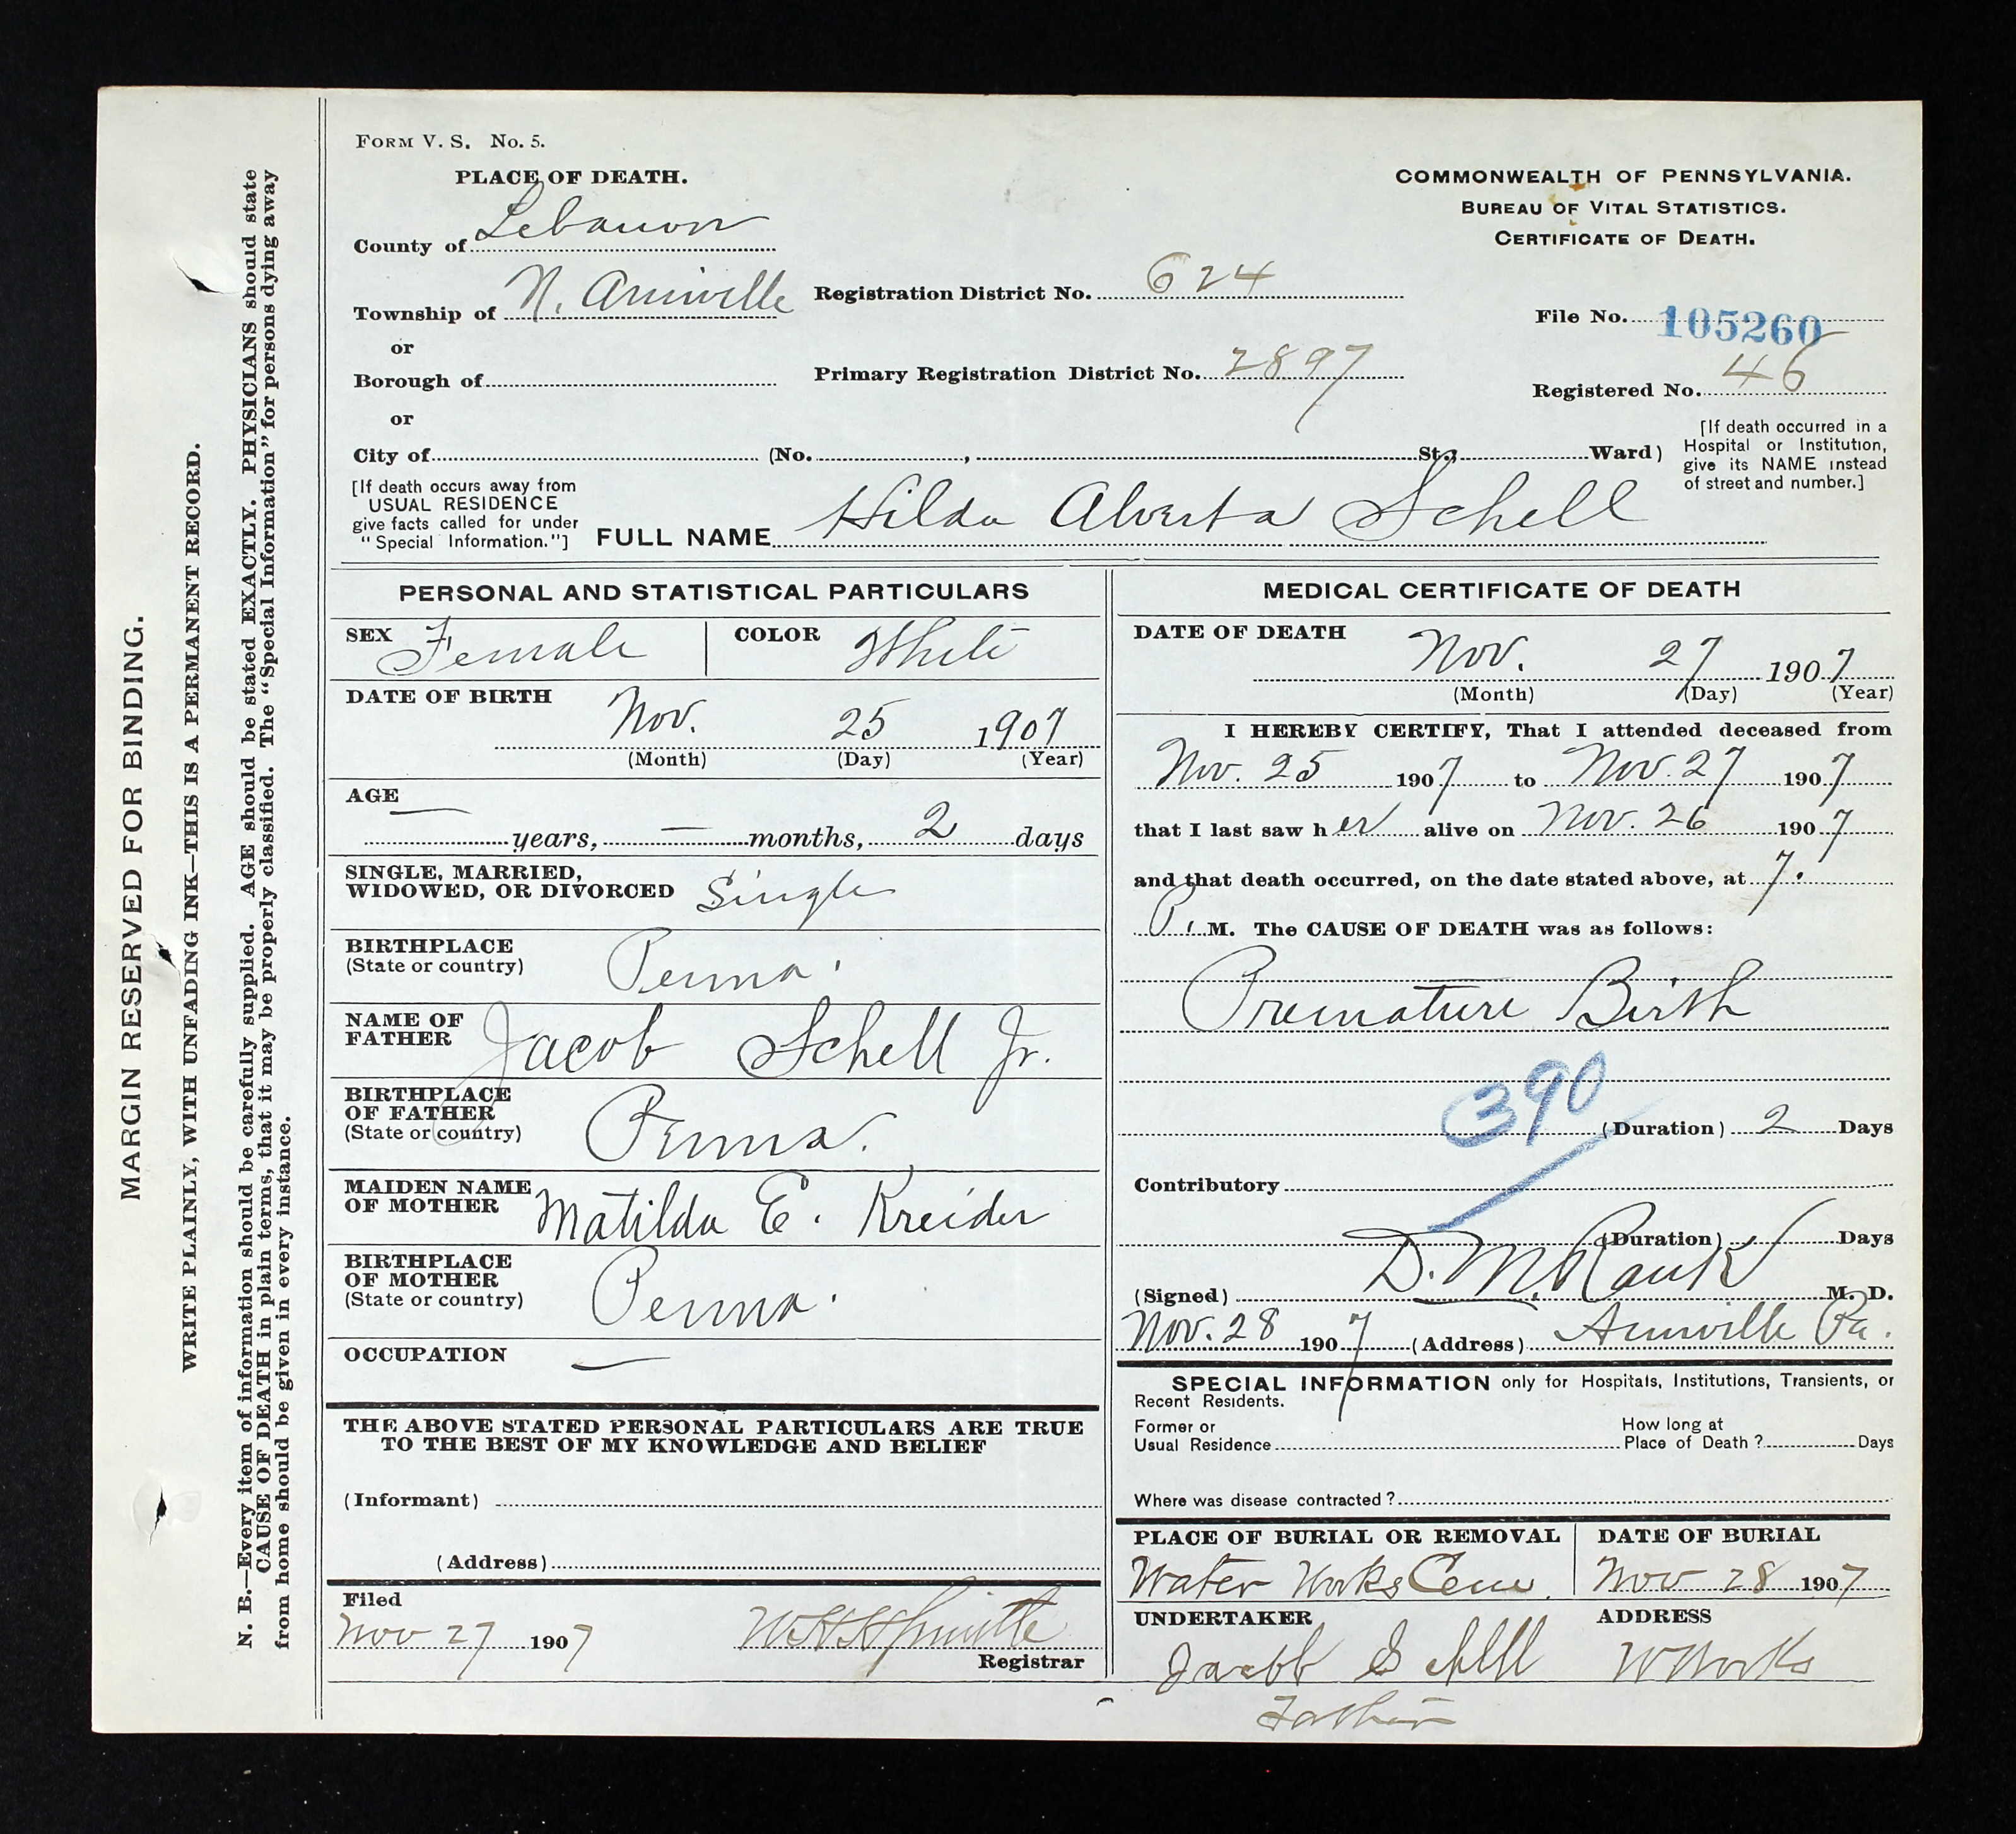 FORM V. S. No. 5.
PLACE OF DEATH.
COMMONWEALTH OF PENNSYLVANIA.
BUREAU OF VITAL STATISTICS.
CERTIFICATE OF DEATH.
County of Lebanon
Township of N. Annville
Registration District No. 624
File No. 105260
or
Borough of
Primary Registration District No. 2897
Registered No. 46
or
City of (No. , St.; Ward)
[If death occurred in a
Hospital or Institution,
give its NAME instead
of street and number.]
[If death occurs away from
USUAL RESIDENCE
give facts called for under
"Special Information."]
FULL NAME Hilda Alverta Schell
PERSONAL AND STATISTICAL PARTICULARS
SEX Female COLOR White
DATE OF BIRTH
Nov. 25 1907
(Month) (Day) (Year)
AGE —
years, — months, 2 days
SINGLE, MARRIED,
WIDOWED, OR DIVORCED Single
BIRTHPLACE
(State or country) Penna.
NAME OF
FATHER Jacob Schell Jr.
BIRTHPLACE
OF FATHER
(State or country) Penna.
MAIDEN NAME
OF MOTHER Matilda E. Kreider
BIRTHPLACE
OF MOTHER
(State or country) Penna.
OCCUPATION —
THE ABOVE STATED PERSONAL PARTICULARS ARE TRUE
TO THE BEST OF MY KNOWLEDGE AND BELIEF
(Informant)
(Address)
Filed
Nov 27 1907
Registrar
MEDICAL CERTIFICATE OF DEATH
DATE OF DEATH
Nov. 27 1907
(Month) (Day) (Year)
I HEREBY CERTIFY, That I attended deceased from
Nov. 25 1907 to Nov. 27 1907
that I last saw her alive on Nov. 26 1907
and that death occurred, on the date stated above, at 7.
P. M. The CAUSE OF DEATH was as follows:
Premature Birth
390
(Duration) 2 Days
Contributory
(Duration) Days
(Signed) D. M. Rank M. D.
Nov. 28 1907 (Address) Annville Pa.
SPECIAL INFORMATION only for Hospitals, Institutions, Transients, or
Recent Residents.
Former or
Usual Residence
How long at
Place of Death ? Days
Where was disease contracted ?
PLACE OF BURIAL OR REMOVAL
Water Works Cem.
DATE OF BURIAL
Nov 28 1907
UNDERTAKER
Jacob Schell
Father
ADDRESS
W Works
MARGIN RESERVED FOR BINDING.
WRITE PLAINLY, WITH UNFADING INK—THIS IS A PERMANENT RECORD.
N. B.—Every item of information should be carefully supplied. AGE should be stated EXACTLY. PHYSICIANS should state
CAUSE OF DEATH in plain terms, that it may be properly classified. The "Special Information" for persons dying away
from home should be given in every instance.